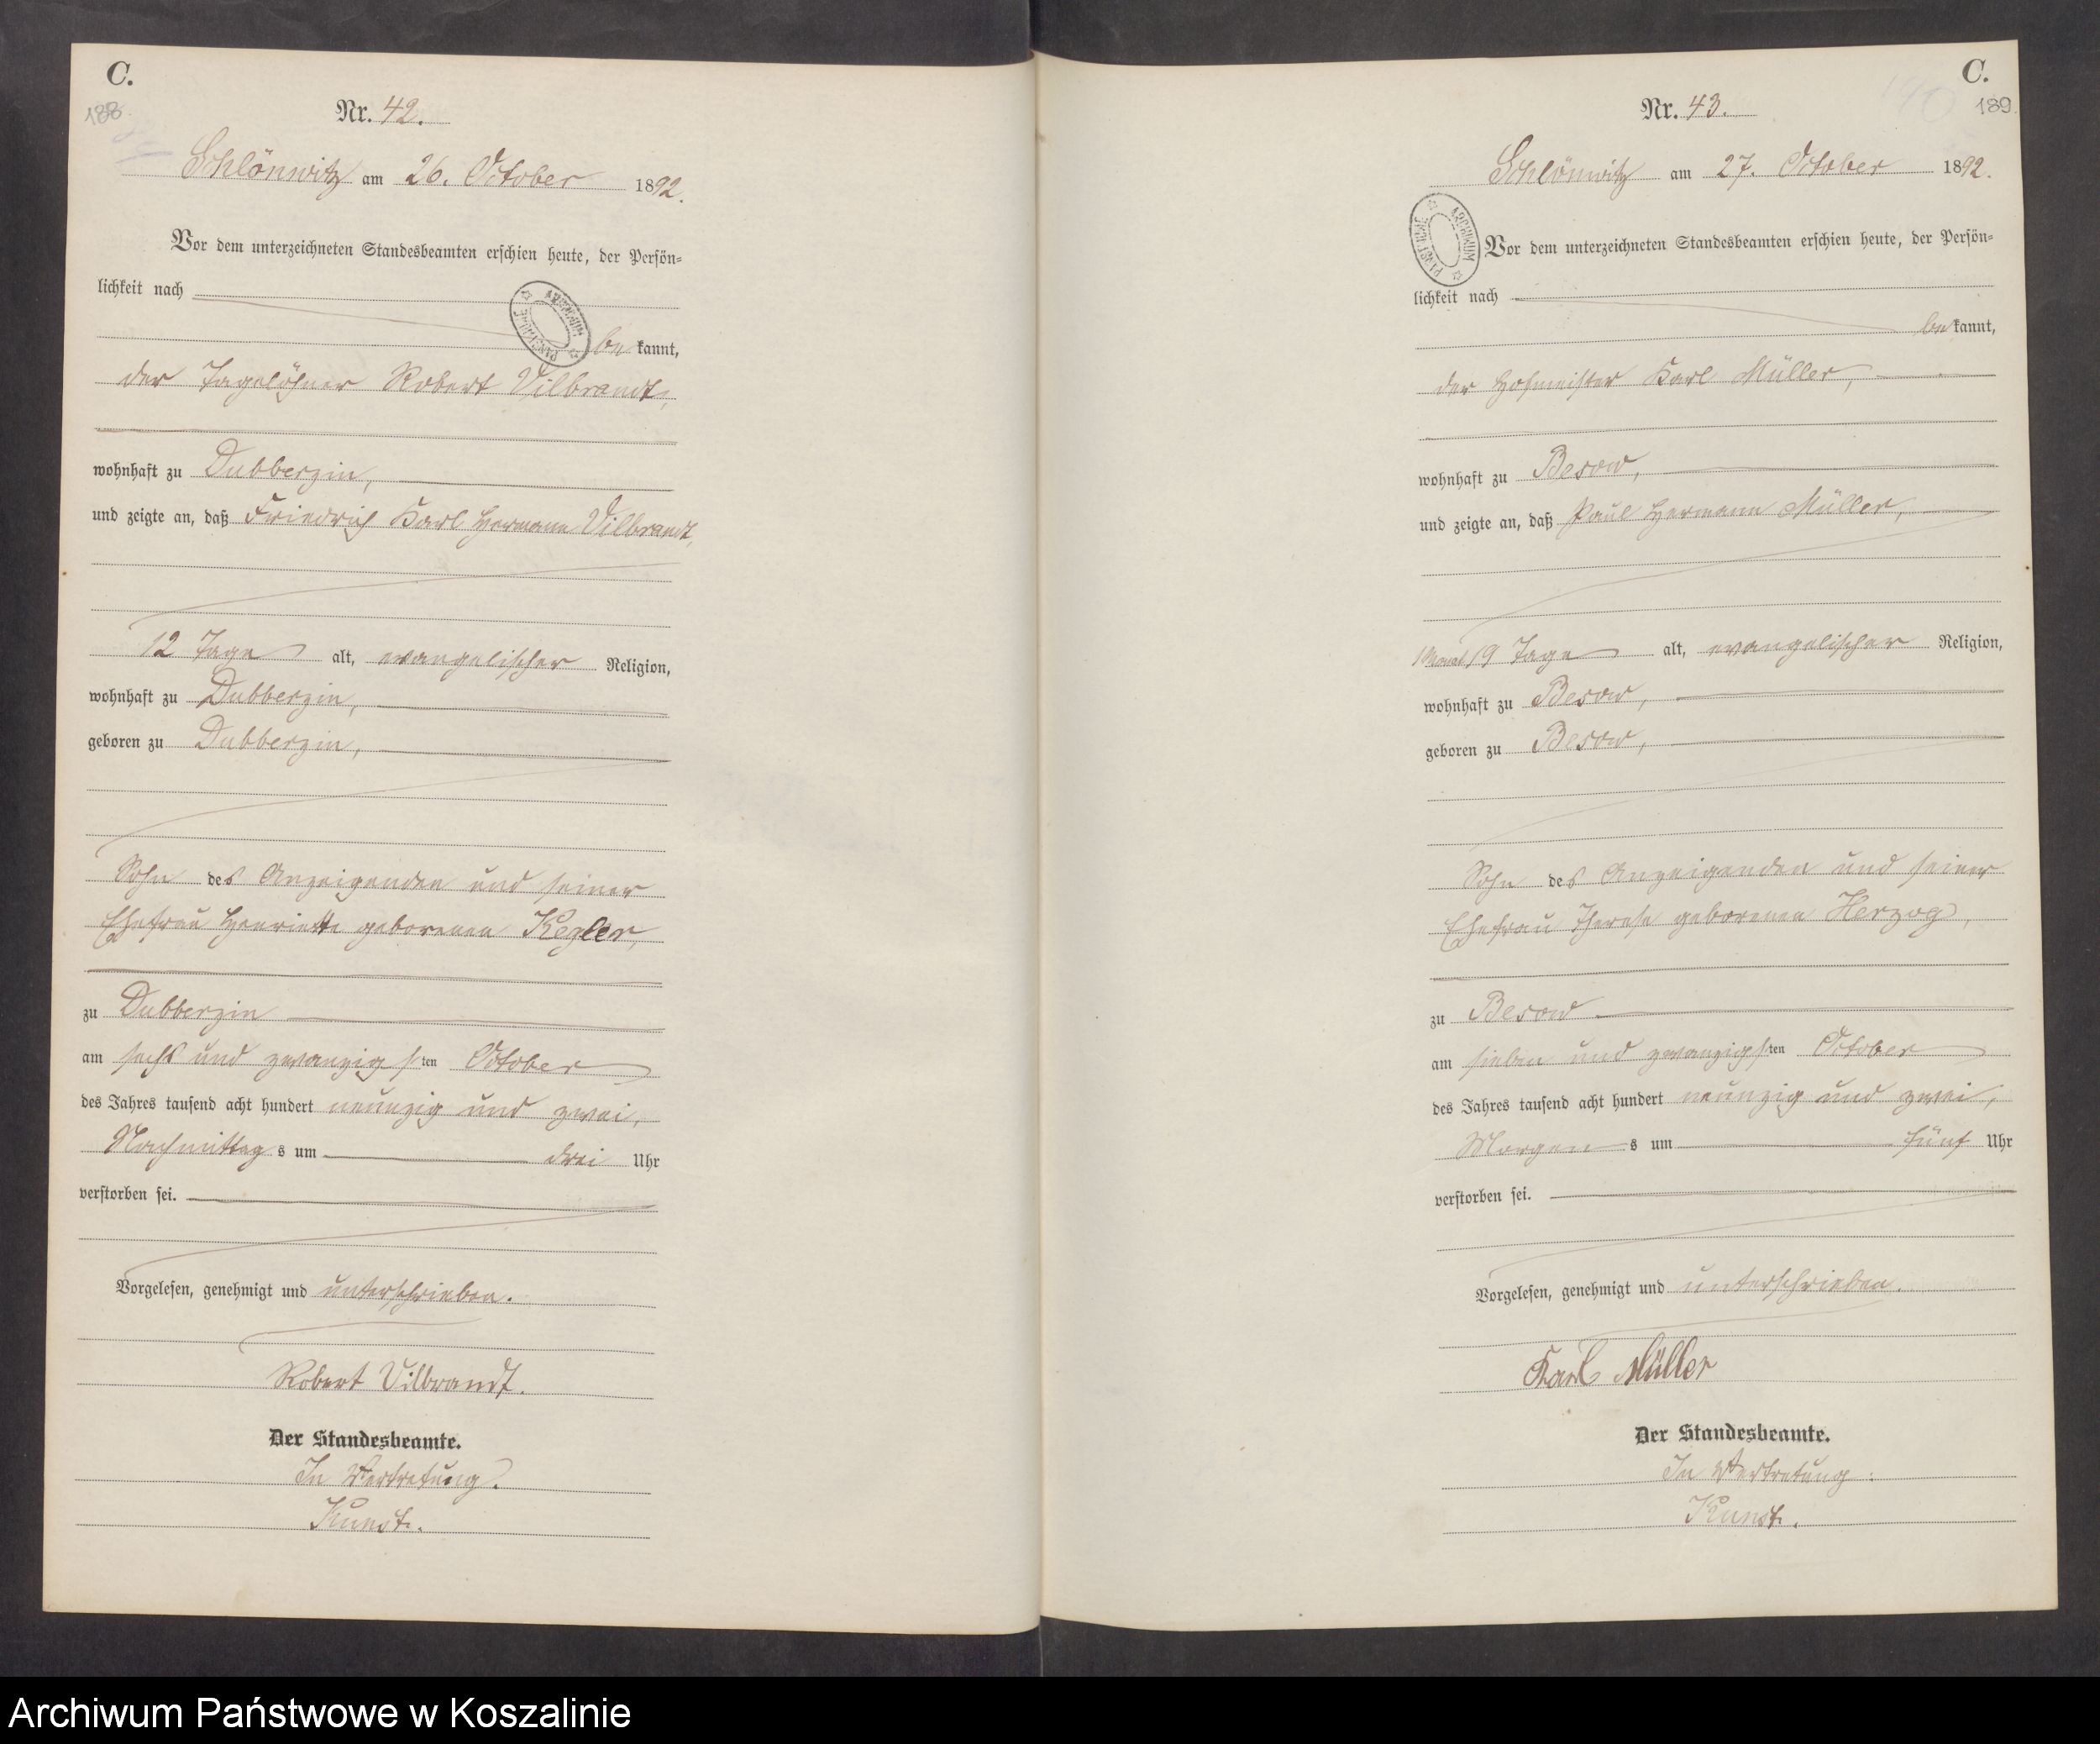 C.
188.
Nr. 42.
Schlönwitz am 26. October 1892.
Vor dem unterzeichneten Standesbeamten erschien heute, der Persön=
lichkeit nach
be kannt,
der Tagelöhner Robert Vilbrandt,
wohnhaft zu Dubberzin,
und zeigte an, daß Friedrich Karl Hermann Vilbrandt,
12 Tage alt, evangelischer Religion,
wohnhaft zu Dubberzin,
geboren zu Dubberzin,
Sohn des Anzeigenden und seiner
Ehefrau Henriette geborenen Kegler,
zu Dubberzin
am sechs und zwanzigsten October
des Jahres tausend acht hundert neunzig und zwei,
Nachmittag s um drei Uhr
verstorben sei.
Vorgelesen, genehmigt und unterschrieben.
Robert Vilbrandt.
Der Standesbeamte.
In Vertretung.
Kunst.
C.
190
189
Nr. 43.
Schlönwitz am 27. October 1892.
ARCHIWUM PAŃSTWOWE
Vor dem unterzeichneten Standesbeamten erschien heute, der Persön=
lichkeit nach
be kannt,
der Hofmeister Karl Müller,
wohnhaft zu Besow,
und zeigte an, daß Paul Hermann Müller,
1 Monat 19 Tage alt, evangelischer Religion,
wohnhaft zu Besow,
geboren zu Besow,
Sohn des Anzeigenden und seiner
Ehefrau Therese geborenen Herzog,
zu Besow
am sieben und zwanzigsten October
des Jahres tausend acht hundert neunzig und zwei,
Morgen s um fünf Uhr
verstorben sei.
Vorgelesen, genehmigt und unterschrieben.
Karl Müller
Der Standesbeamte.
In Vertretung:
Kunst.
Archiwum Państwowe w Koszalinie